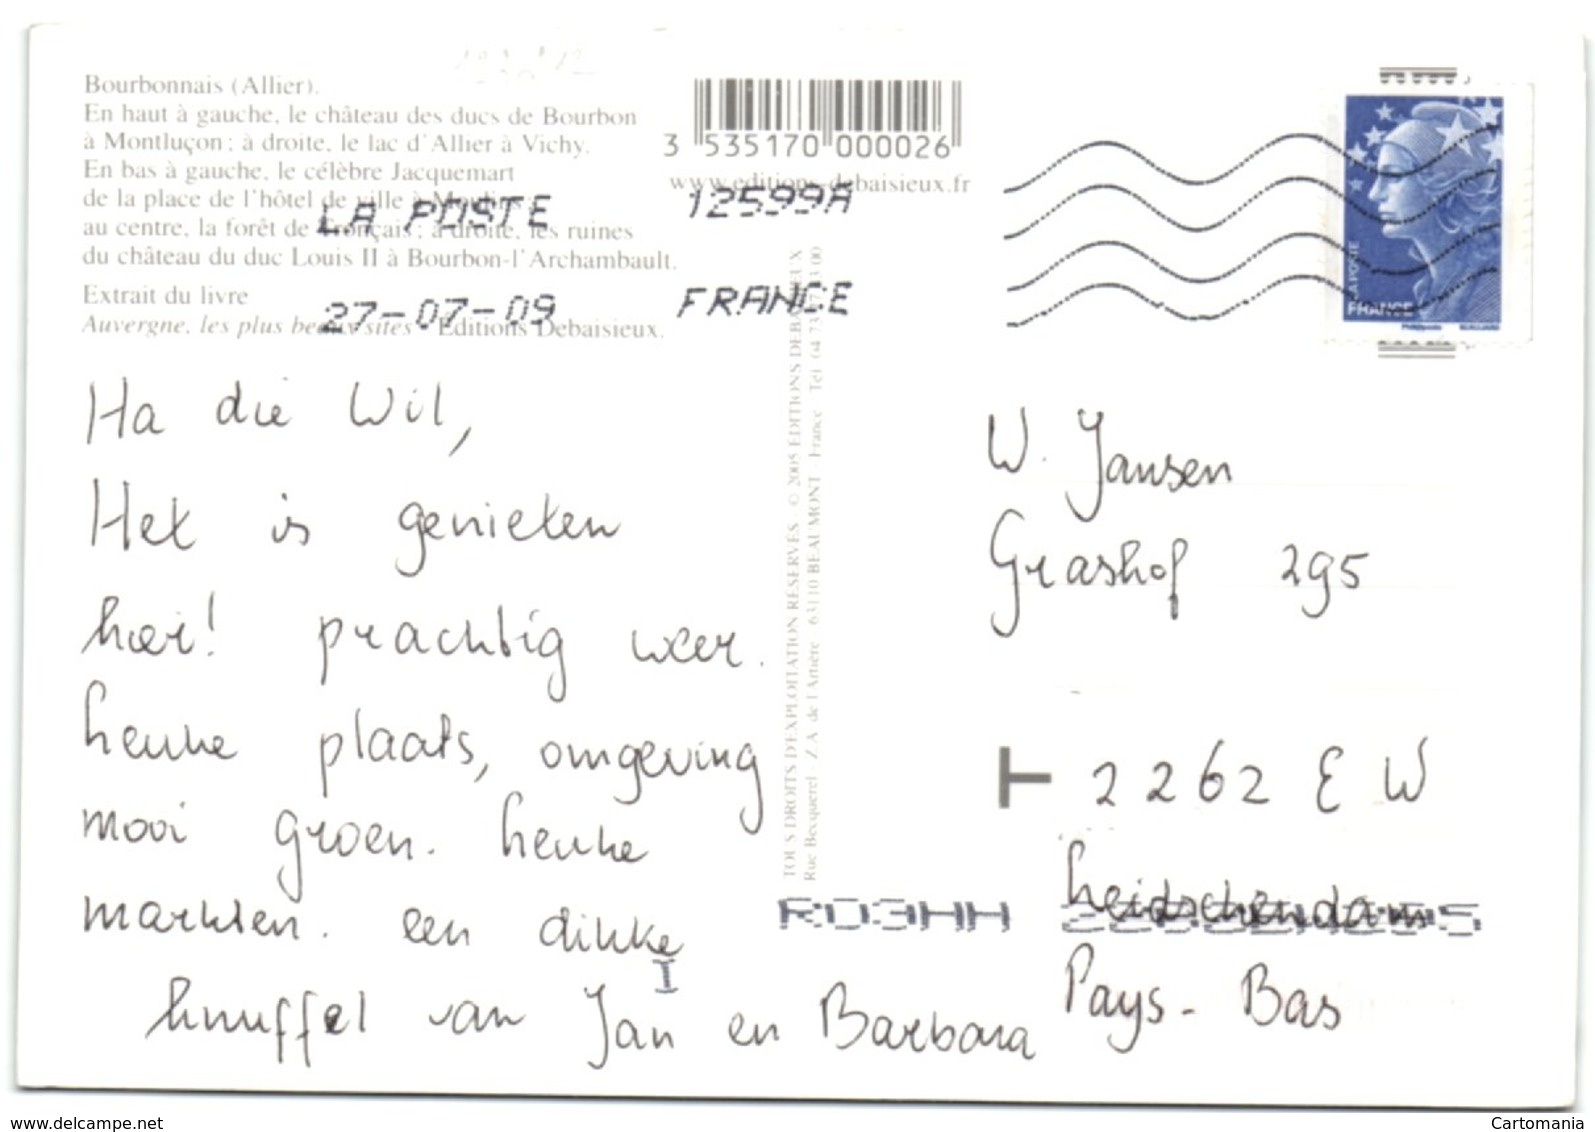 Bourbonnais (Allier).
En haut à gauche, le château des ducs de Bourbon
à Montluçon ; à droite, le lac d'Allier à Vichy.
En bas à gauche, le célèbre Jacquemart
de la place de l'hôtel de ville à Moulins ;
au centre, la forêt de Tronçais ; à droite, les ruines
du château du duc Louis II à Bourbon-l'Archambault.
Extrait du livre
Auvergne, les plus beaux sites - Editions Debaisieux.
3 535170 000026
www.editions-debaisieux.fr
LA POSTE 12599A
27-07-09 FRANCE
LA POSTE
FRANCE
TOUS DROITS D'EXPLOITATION RESERVES - © 2005 EDITIONS DEBAISIEUX
Rue Becquerel - Z.A. de l'Artière 63110 BEAUMONT - France - Tél.
Ha die Wil,
Het is genieten
hier! prachtig weer.
heuke plaats, omgeving
mooi groen. heuke
markten. een dikke
knuffel van Jan en Barbara
W. Jansen
Grashof 295
T
2262 EW
heidschendam
Pays-Bas
RO3HH
I
www.delcampe.net
Cartomania